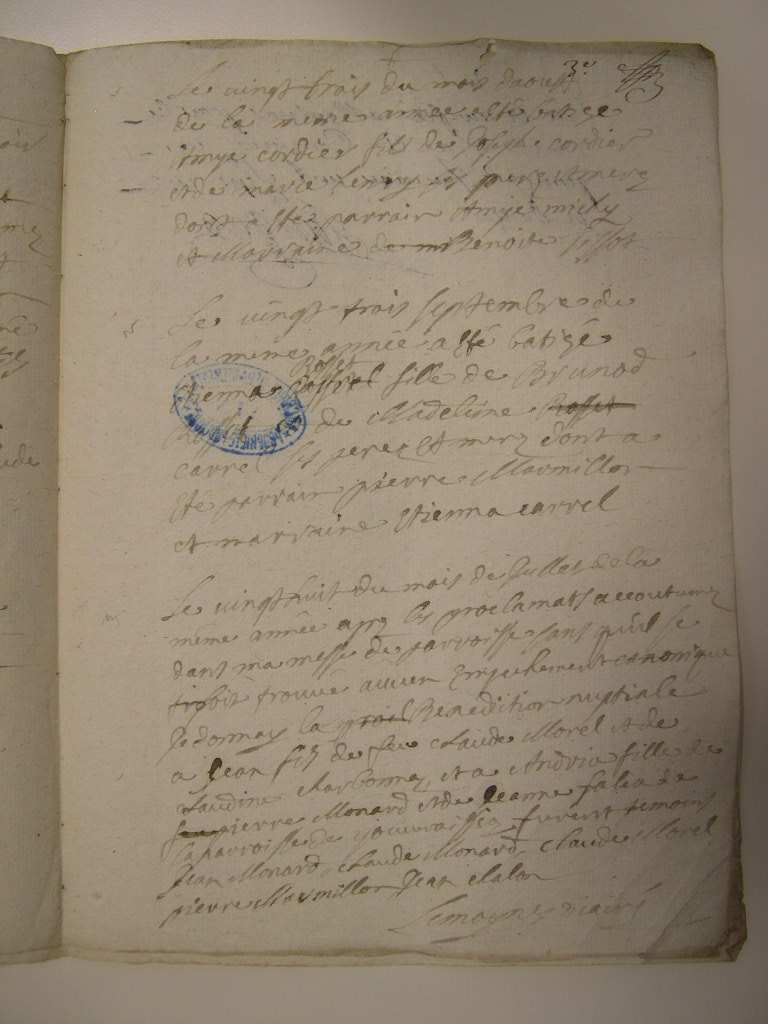 3e
Le vingt trois du mois daoust
de la meme année a esté batise
Amye cordier fils de Joseph cordier
et de marie ses pere et mere
dont a esté parrain Amye michy
et Marraine Benoite
Le vingt trois septembre de
la même année a esté batizé
Rosset
Etienna Carrel fille de Brunod
de Madeleine Rosset
Carrel ses pere et mere dont a
été parrain pierre Marmillon
et marraine Etienna carrel
Le vingt huit du mois de Jullet de la
même année apres les proclamats accoutumez
dans ma messe de parroisse sans qu'il se
soit trouvé aucun empechement canonique
Je donnay la Benediction nuptiale
a Jean fils de feu claude Morel et de
claudine charbonnez et a Andria fille de
feu pierre Monard et de Jeanne falia de
la parroisse de furent temoins
Jean Monard, claude Monard, claude Morel
pierre Marmillon Jean Malon
Lemoyne viaire